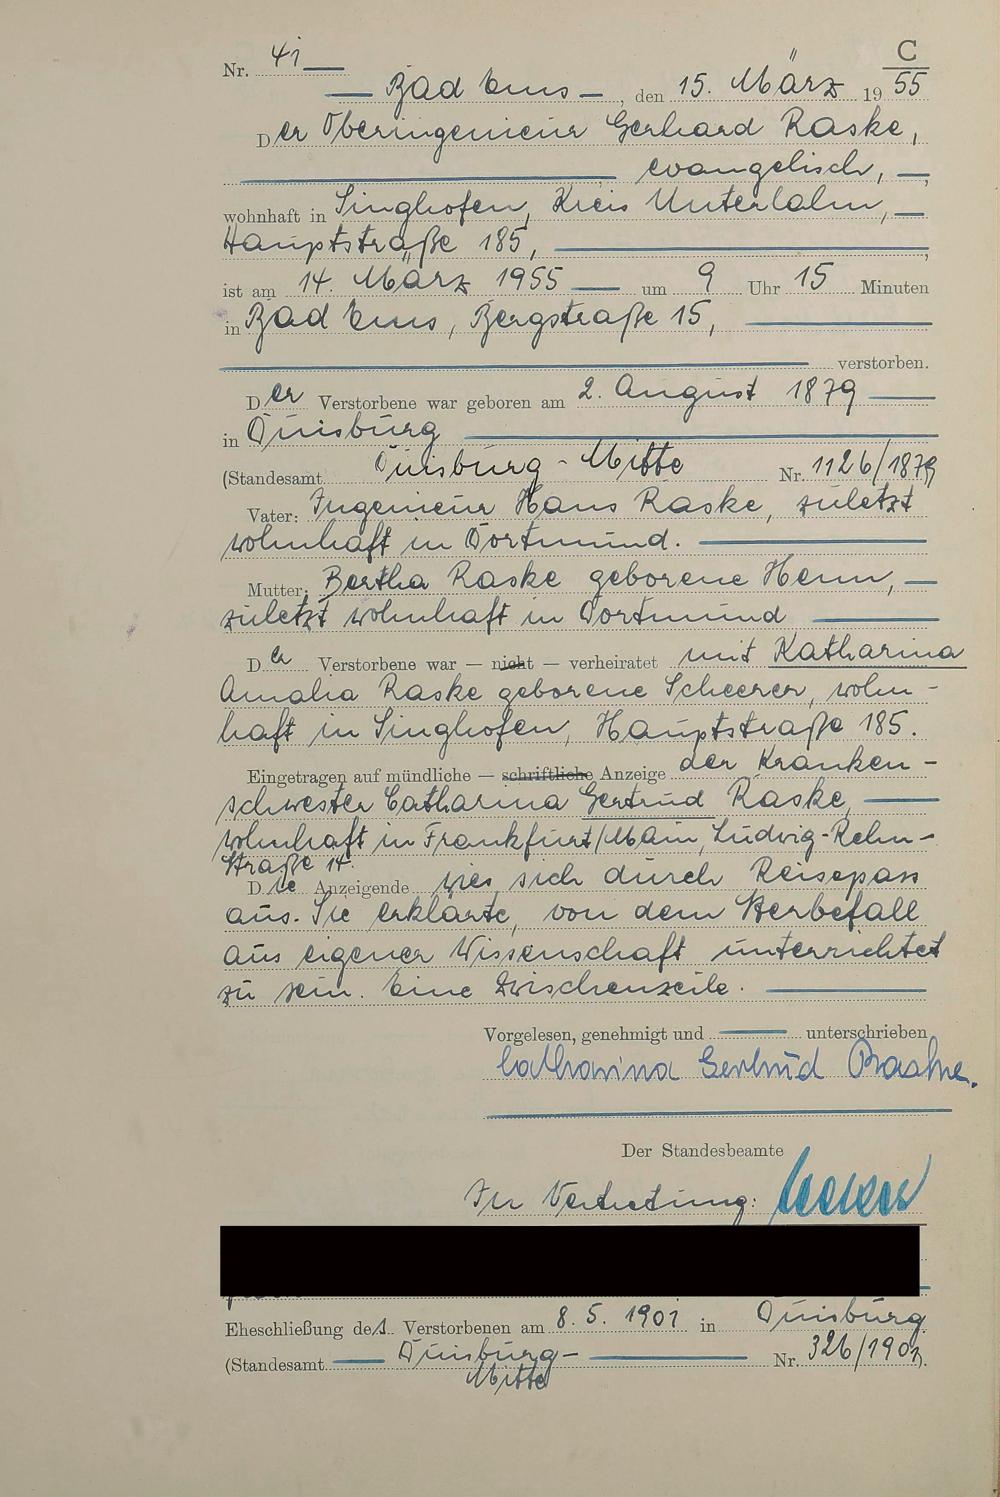 Nr. 41
C
Bad Ems, den 15. März 1955
Der Oberingenieur Gerhard Raske,
evangelisch,
wohnhaft in Singhofen, Kreis Unterlahn,
Hauptstraße 185,
ist am 14. März 1955 um 9 Uhr 15 Minuten
in Bad Ems, Bergstraße 15,
verstorben.
Der Verstorbene war geboren am 2. August 1879
in Duisburg
(Standesamt Duisburg-Mitte Nr. 1126/1879
Vater: Ingenieur Hans Raske, zuletzt
wohnhaft in Dortmund.
Mutter: Bertha Raske geborene Henn,
zuletzt wohnhaft in Dortmund
Der Verstorbene war — nicht — verheiratet mit Katharina
Amalia Raske geborene Scheerer, wohn-
haft in Singhofen, Hauptstraße 185.
Eingetragen auf mündliche — schriftliche Anzeige der Kranken-
schwester Catharina Gertrud Raske,
wohnhaft in Frankfurt/Main, Ludwig-Rehn-
Straße 14.
Die Anzeigende wies sich durch Reisepass
aus. Sie erklärte, von dem Sterbefall
aus eigener Wissenschaft unterrichtet
zu sein. Eine Zwischenzeile.
Vorgelesen, genehmigt und unterschrieben
Catharina Gertrud Raske.
Der Standesbeamte
In Vertretung:
Eheschließung des Verstorbenen am 8. 5. 1901 in Duisburg
(Standesamt Duisburg- Nr. 326/1901.
Mitte